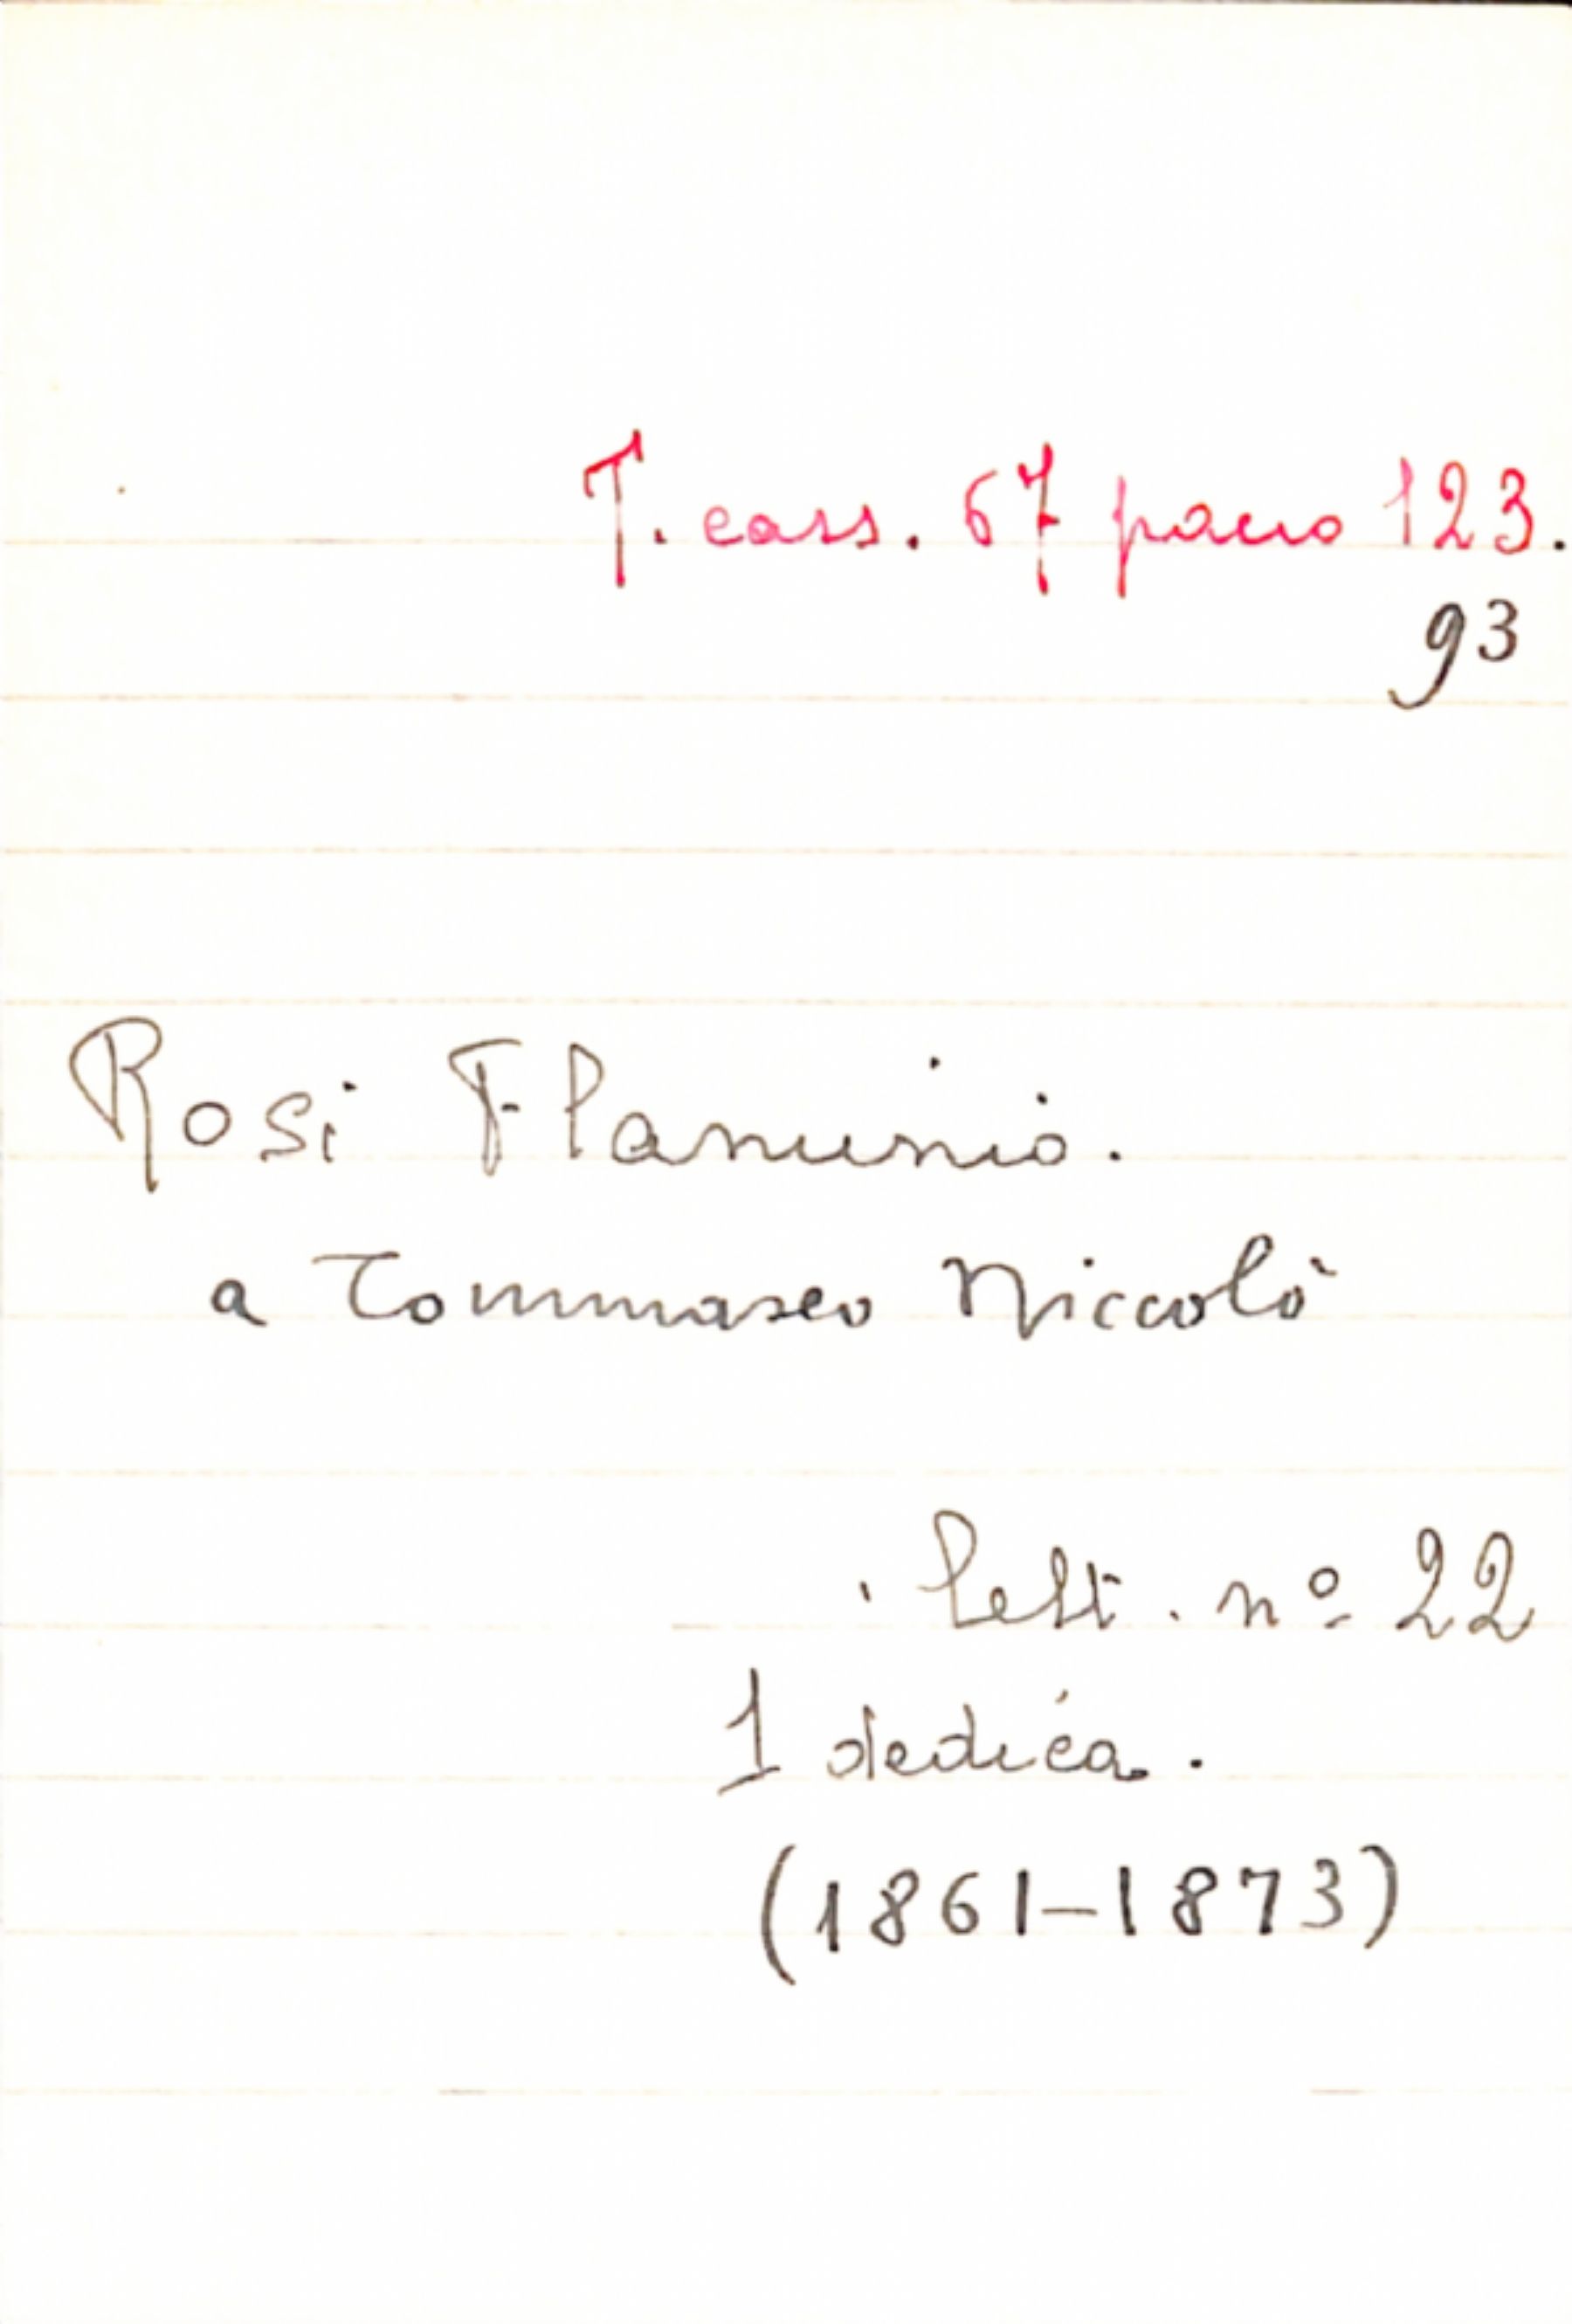 T. cass. 67 pacco 123.
93
Rosi Flaminio.
a Tommaseo Niccolò
lett. nº 22
1 dedica.
(1861-1873)